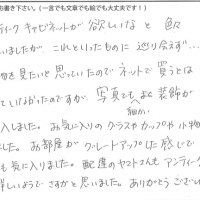 お書き下さい。(一言でも文章でも絵でも大丈夫です！)
ティーク キャビネットが 欲しいな と
いましたが、これといったものに 巡り会えず…
物を見たいと 思っていたので ネットで 買うとは
っていなかったのですが、写真でも 細かい 装飾が
入しました。お気に入りの グラスやカップや 小物
ました。お部屋が グレードアップした 感じで
も 気に入りました。配達のヤマトさんも アンティーク
詳しいようで さすがと 思いました。ありがとう ござい